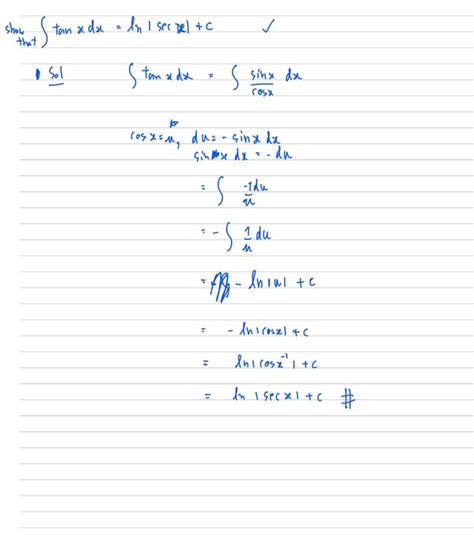 show that ∫ tan x dx = ln |sec x| + c ✓
Sol ∫ tan x dx = ∫ sinx/cosx dx
cos x = u, du = - sin x dx
sin x dx = - du
= ∫ -1/u du
= - ∫ 1/u du
= - ln |u| + c
= - ln |cosx| + c
= ln |cosx⁻¹| + c
= ln |sec x| + c #